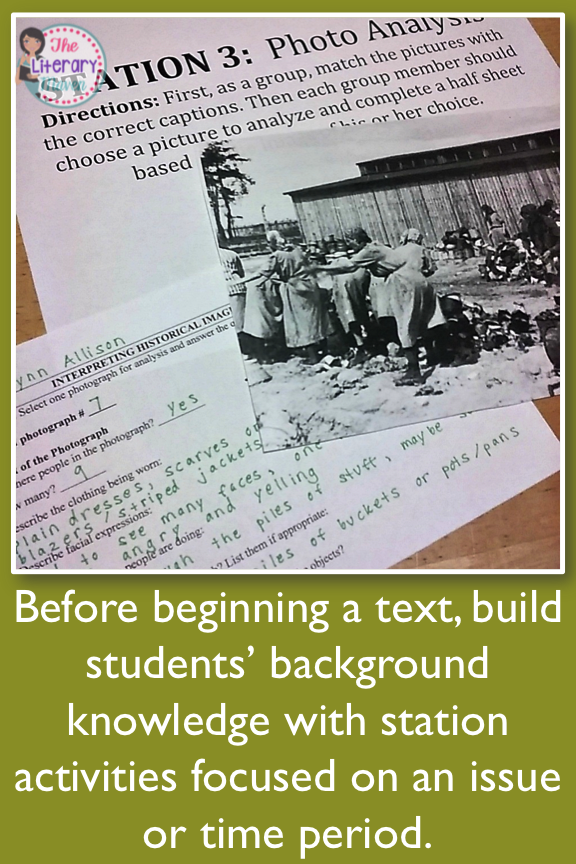 The
Literary
Maven
STATION 3: Photo Analysis
Directions: First, as a group, match the pictures with
the correct captions. Then each group member should
choose a picture to analyze and complete a half sheet
based of his or her choice.
ynn Allison
INTERPRETING HISTORICAL IMAG
Select one photograph for analysis and answer the q
photograph # 7
of the Photograph
here people in the photograph? yes
many? 9
scribe the clothing being worn:
plain dresses, scarves or
blazers/striped jackets
escribe facial expressions:
to see many faces, one
angry and yelling
people are doing:
gh the piles of stuff, maybe
? List them if appropriate:
piles of buckets or pots/pans
objects?
Before beginning a text, build
students’ background
knowledge with station
activities focused on an issue
or time period.